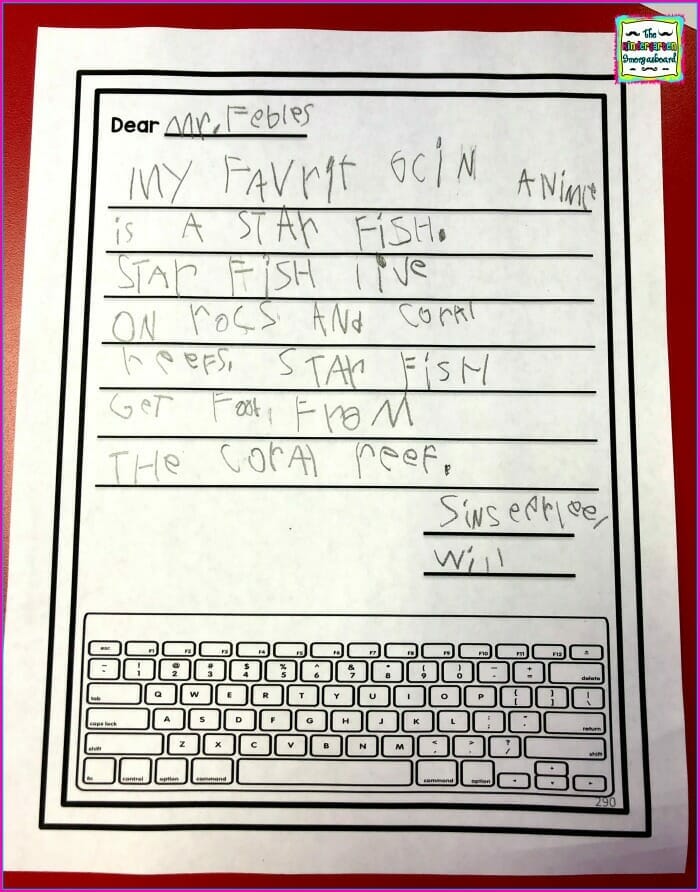 The
kindergarten
Smorgasboard
Dear Mr. Febles
MY FAVrit OCIN ANiMle
is A STAr FiSH.
STAr FiSH live
ON rocS ANd corAl
reeFS. STAr FiSH
GeT Food FroM
THe CorAl reeF.
Sinseerlee,
Will
esc F1 F2 F3 F4 F5 F6 F7 F8 F9 F10 F11 F12
~ ` ! 1 @ 2 # 3 $ 4 % 5 ^ 6 & 7 * 8 ( 9 ) 0 _ - + = delete
tab Q W E R T Y U I O P { [ } ] | \
caps lock A S D F G H J K L : ; " ' return
shift Z X C V B N M < , > . ? / shift
fn control option command command option
290